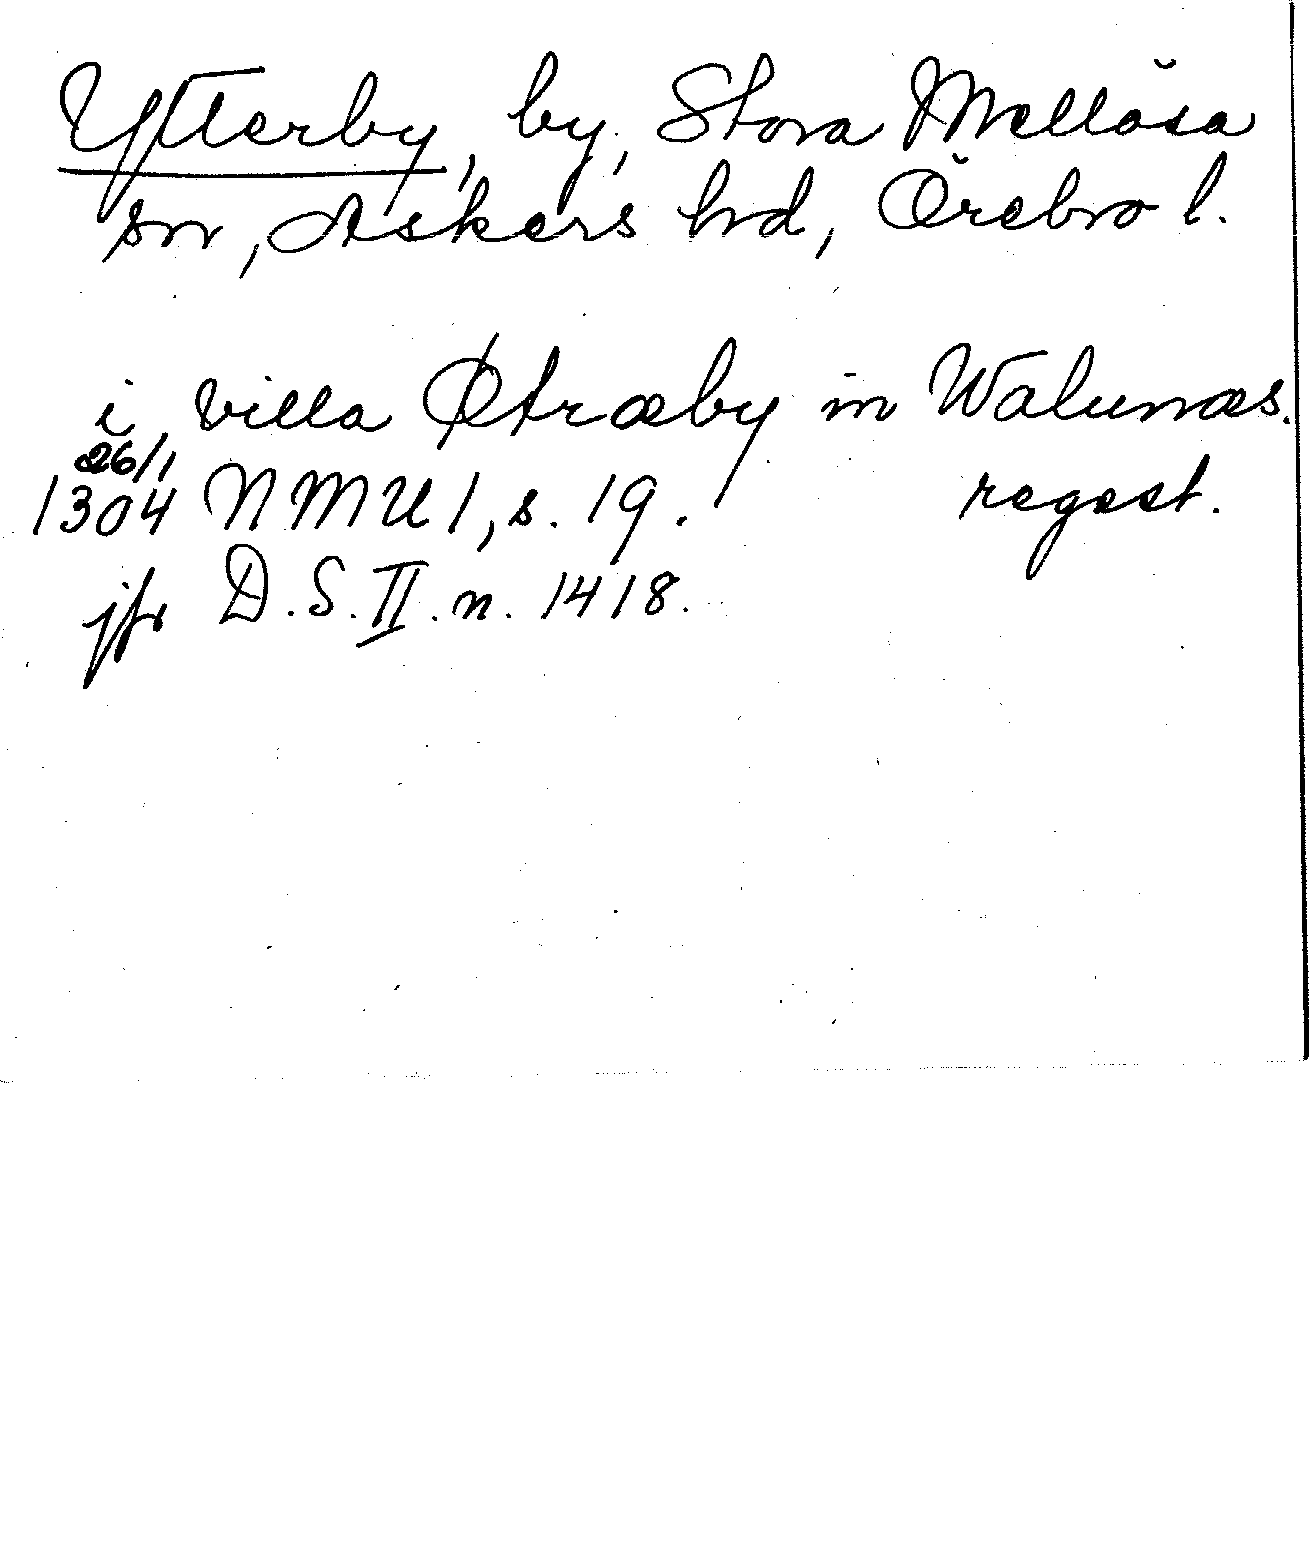 Ytterby, by, Stora Mellösa
sn, Askers hrd, Örebro l.
i villa Øtræby in Walunæs.
26/1
1304 NMU 1, s. 19. regest.
jfr D.S. II. n. 1418.